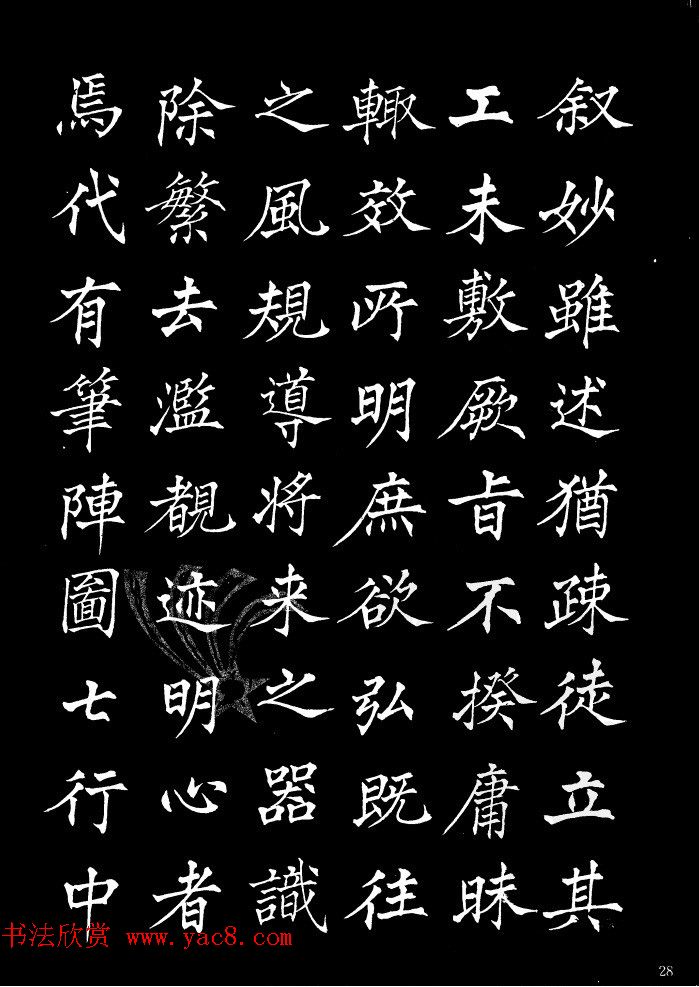 叙妙雖述猶疎徒立其
工未敷厥旨不揆庸昧
輙效所明庶欲弘既往
之風規導將来之器識
除繁去濫覩迹明心者
焉代有筆陣圖七行中
书法欣赏 www.yac8.com
28